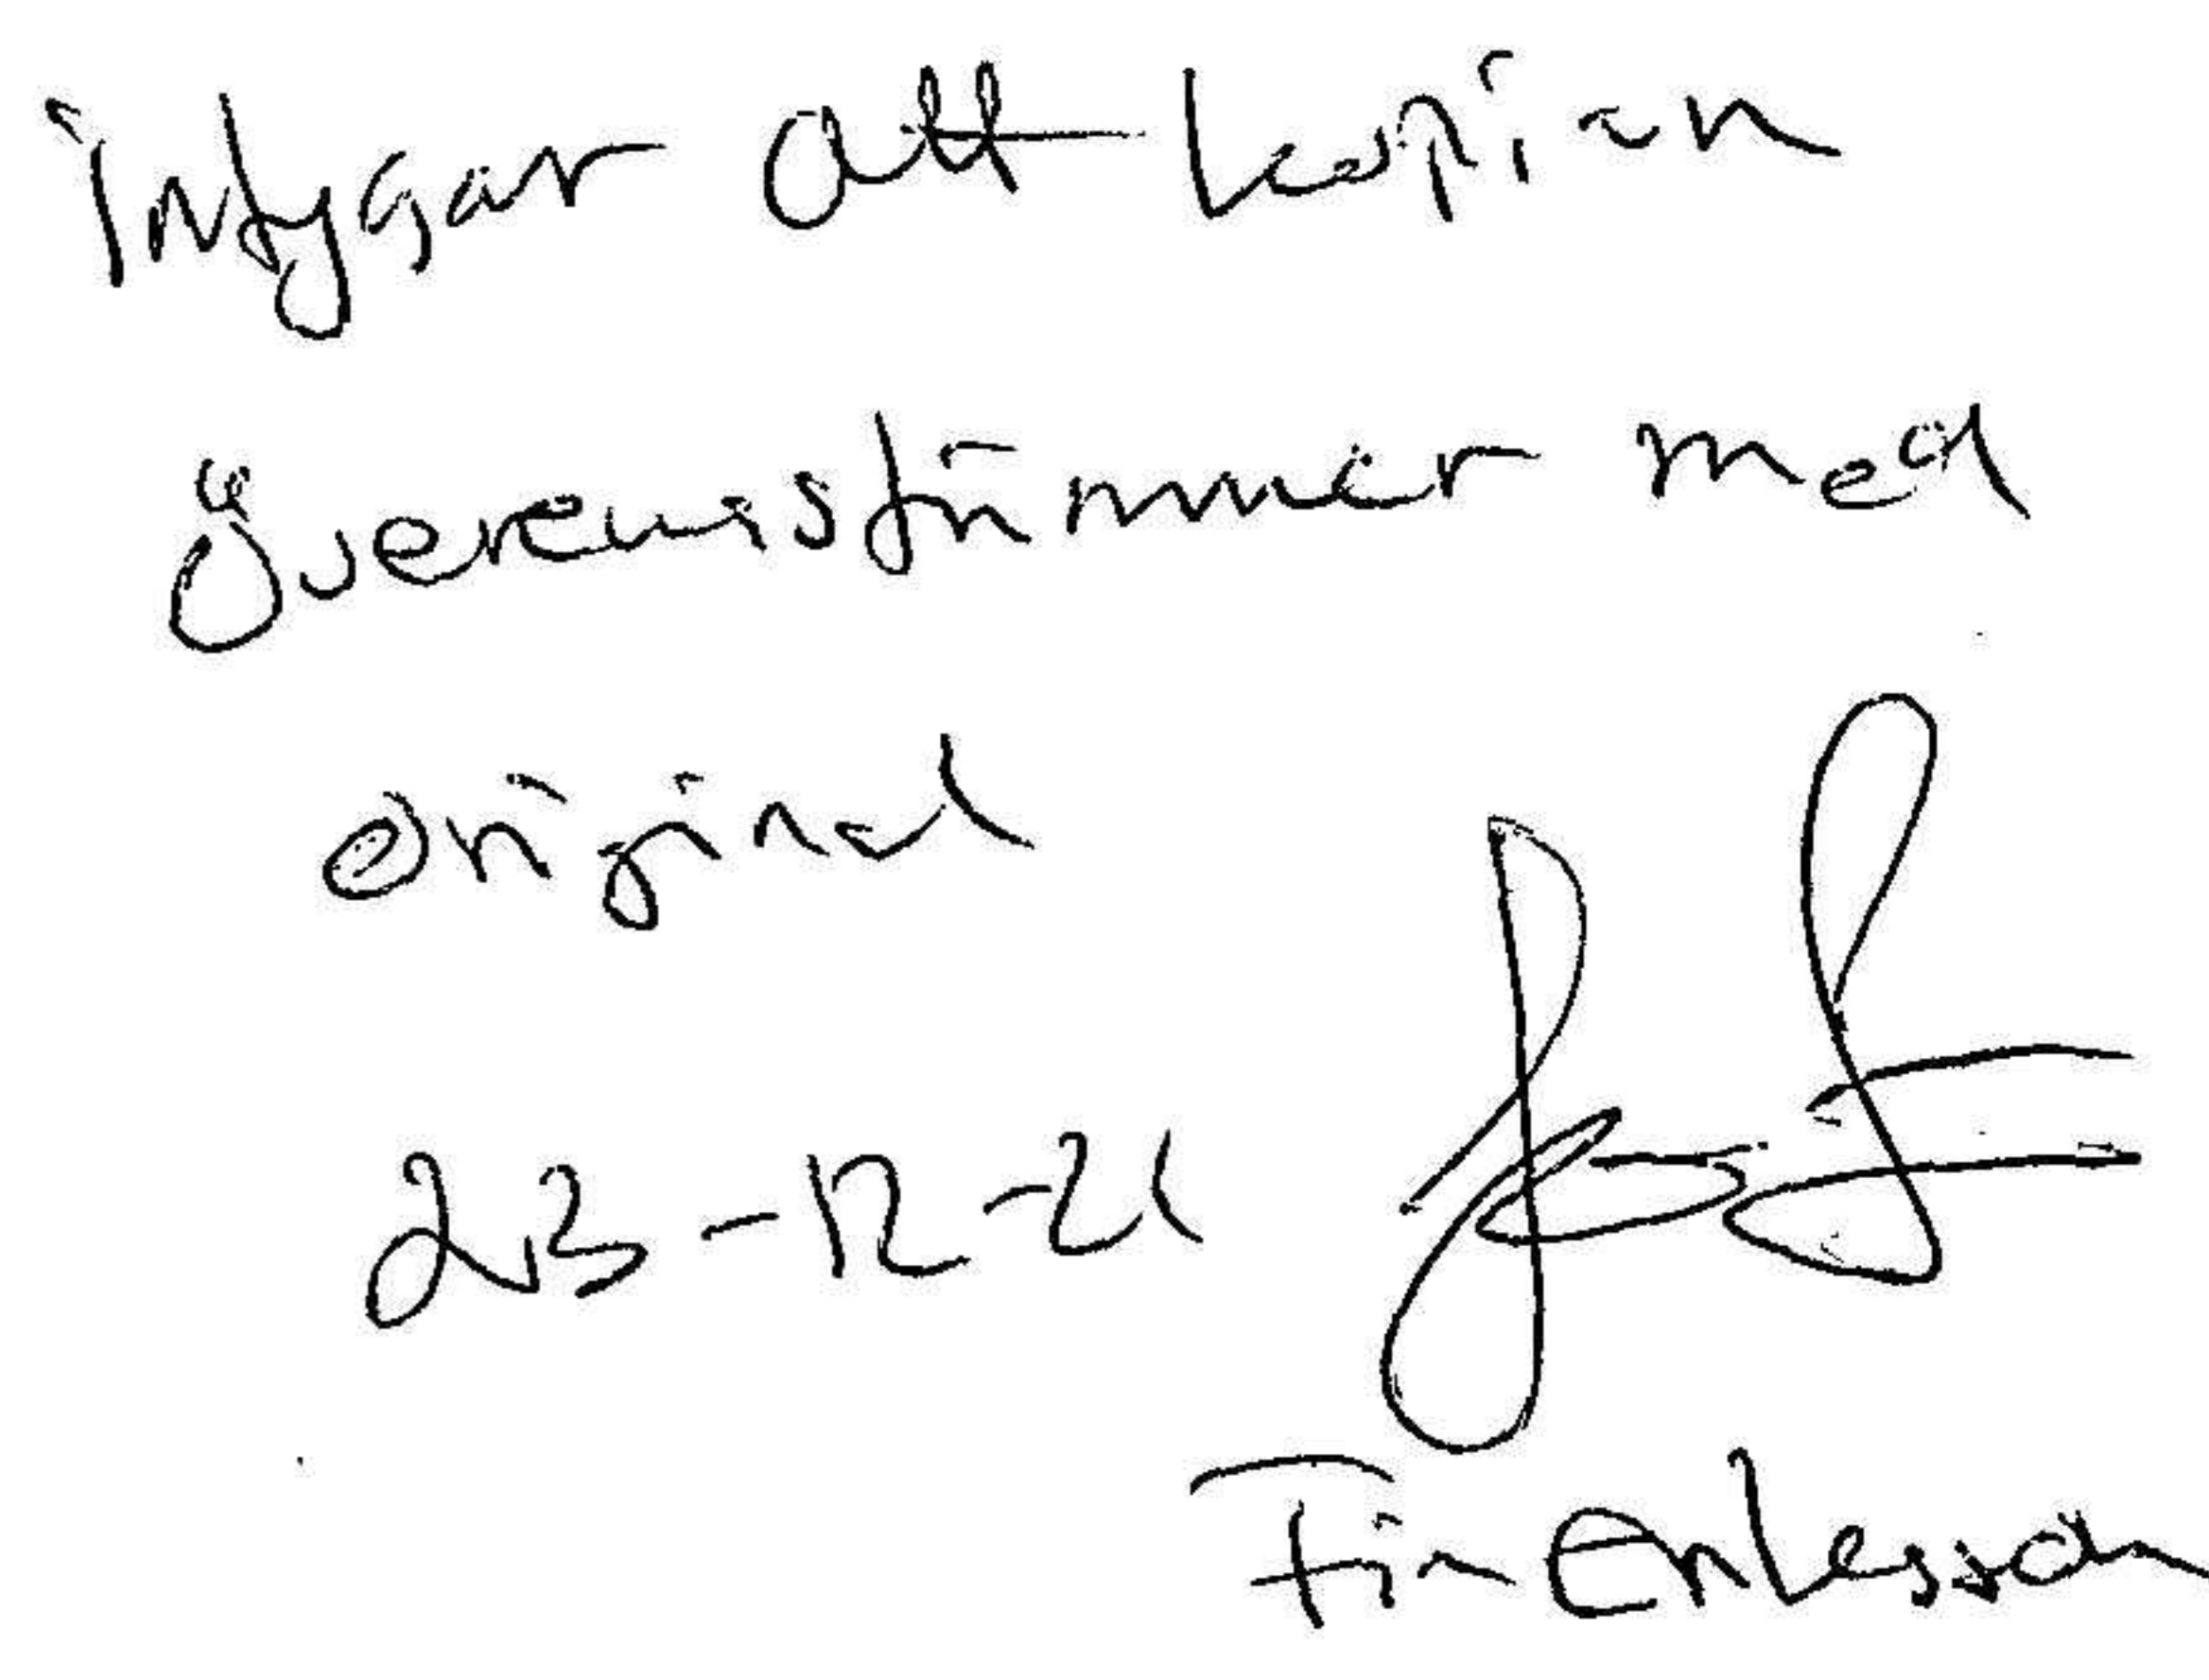 intygar att kopian
överensstämmer med
original
23-12-21
Fin Eriksson